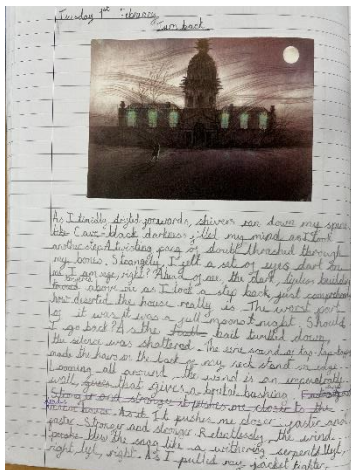 Tuesday 1st February
I am back
As I timidly dayled forwards, shivers ran down my spine
like Cavernblack darkness filled my mind as I took
another step. A twisting pang of doubt thrashed through
my bones. Strangely, I felt a set of eyes dart on
me I am safe, right? Ahead of me the dark, lifeless building
towered above me as I took a step back, just comprehend
how deserted the house really is. The worst part
of it was it was a full moon at night. Should
I go back? As the bats tumbled down,
the silence was shattered. The eerie sound of tap-tap-tap
made the hairs on the back of my neck stand on edge.
Looming all around the wind is an impenetrable
wall, given that gives a brutal bashing.
stronger and stronger it pushes me closer to the
house. As it pushes me closer, faster and
faster. Stronger and stronger. Relentlessly the wind
blew the like a withering serpent. Left,
right, left, right. As I pulled my jacket tighter,